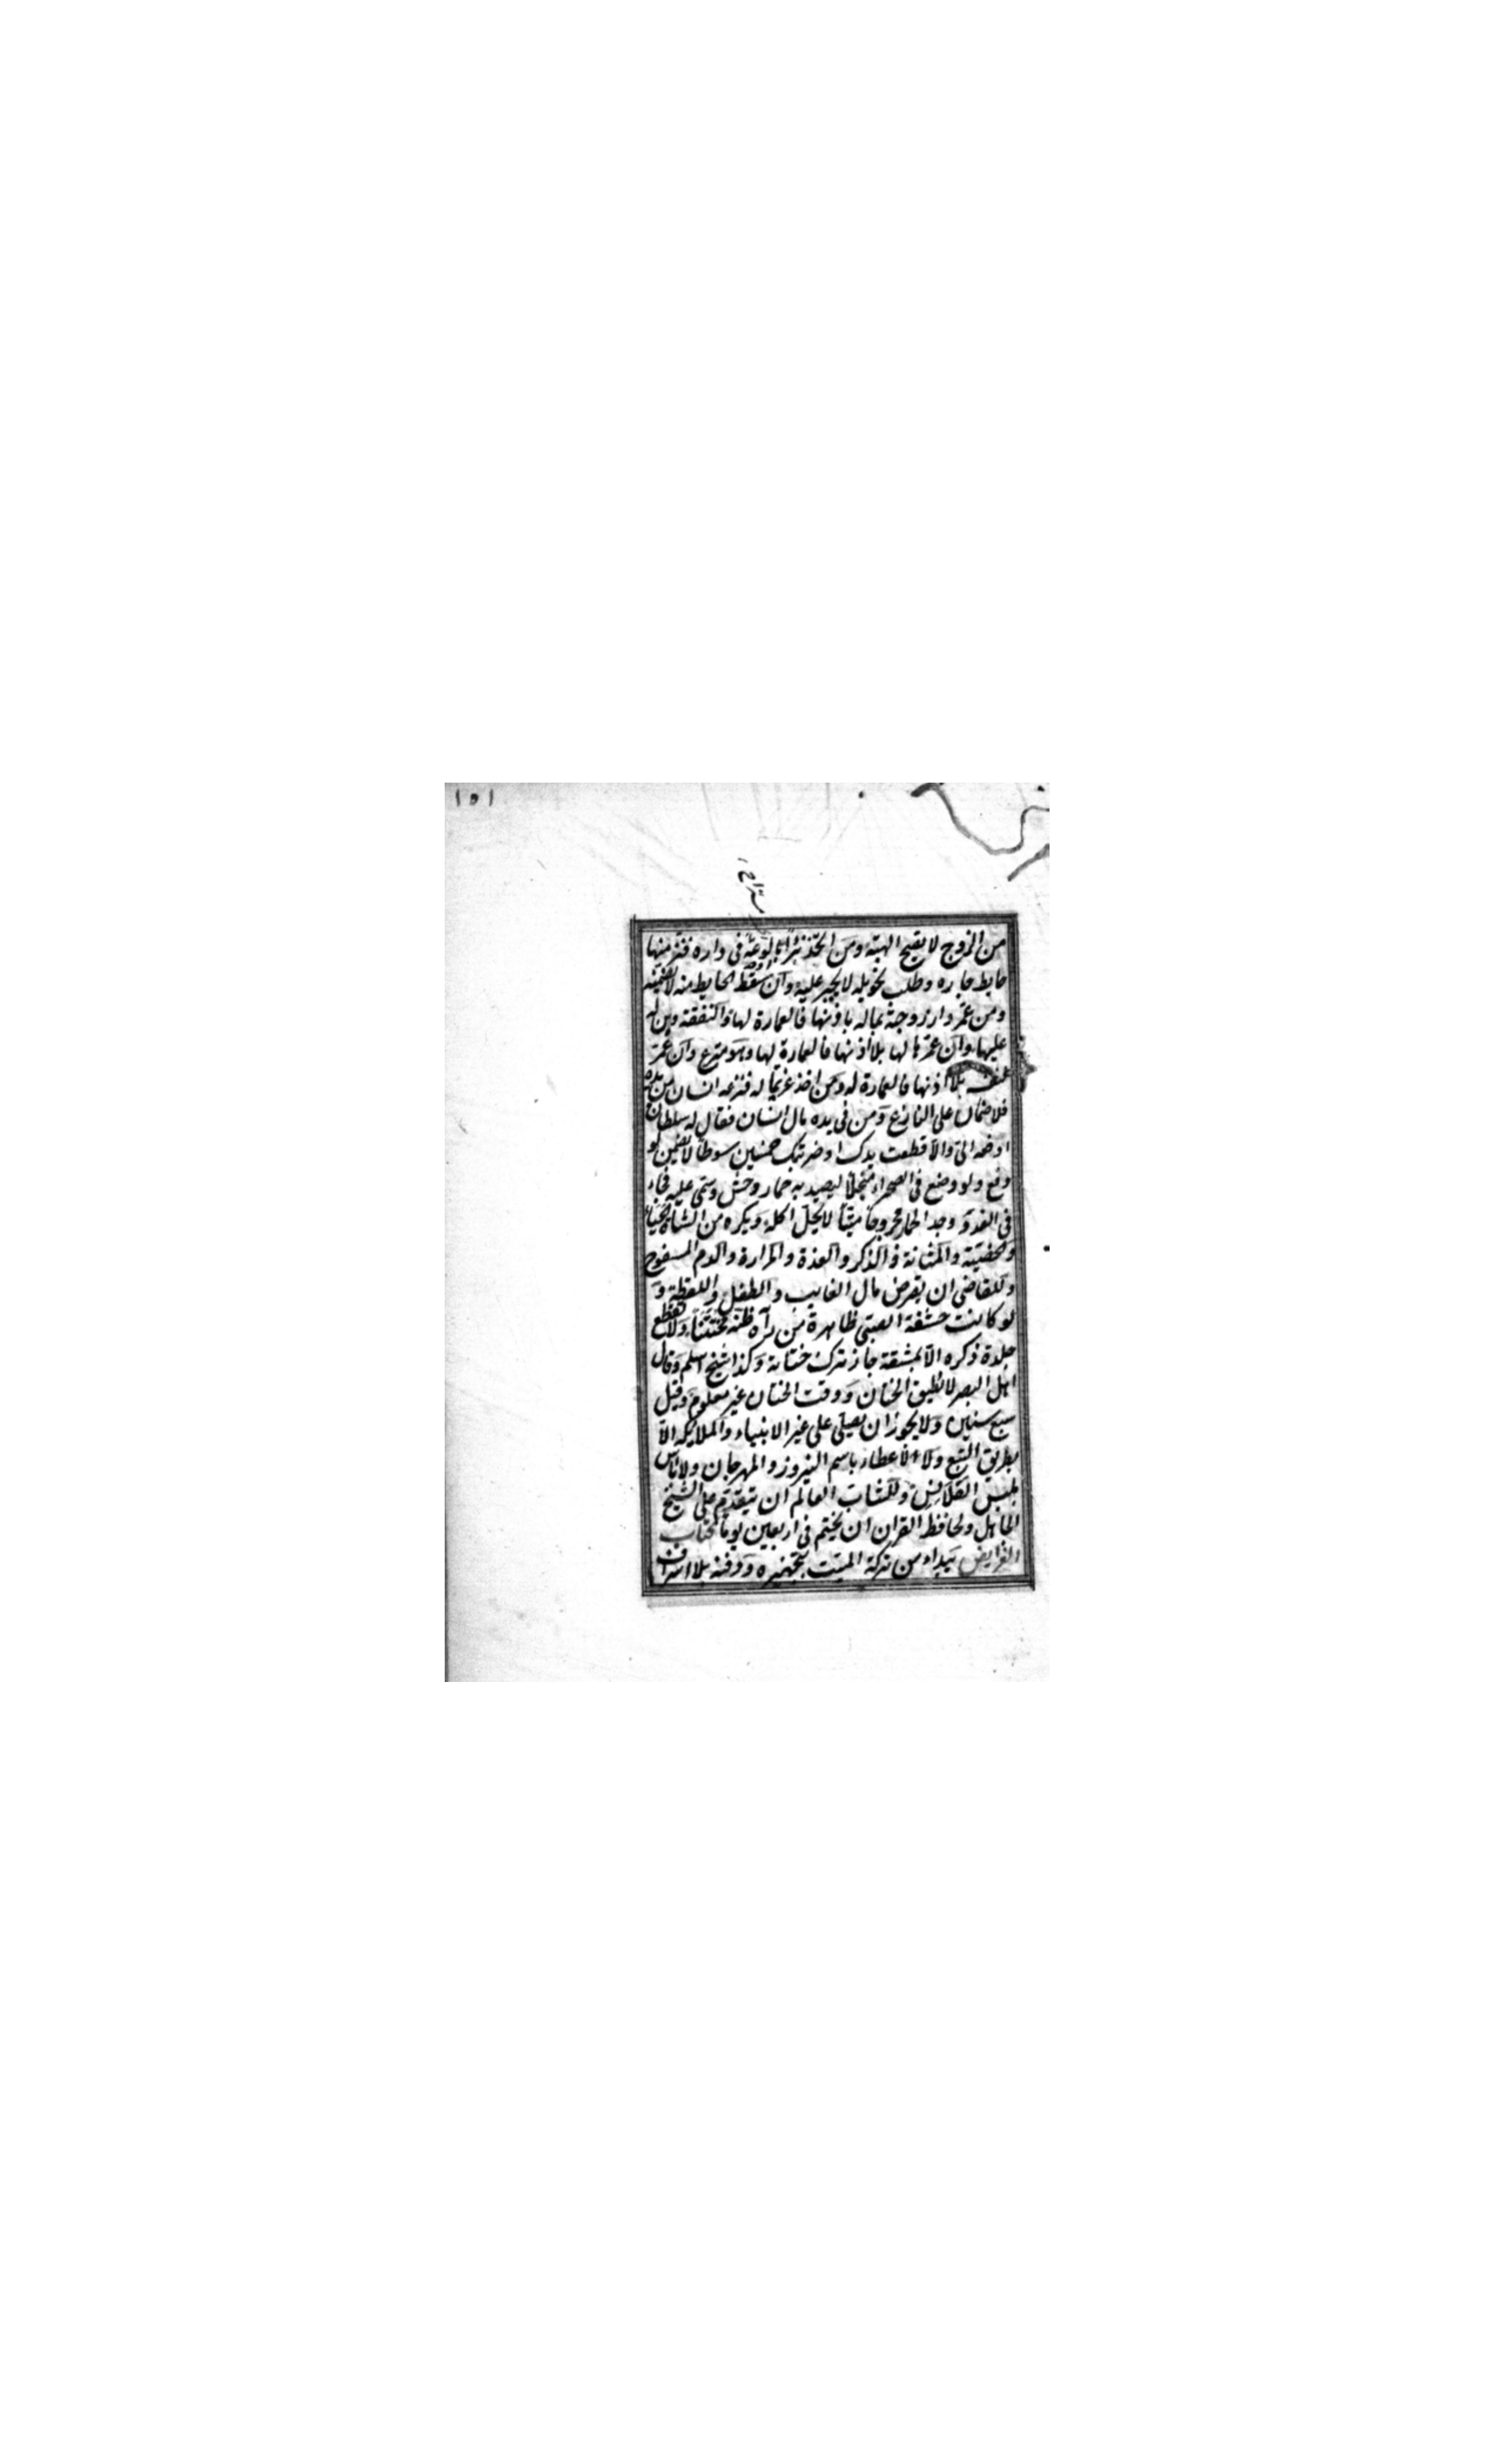 ١٥١
من الزوج لا يصح الهبة ومن اتخذ بئرا او بالوعة فى داره فنز منها
حايط جاره وطلب تحويله لا يجبر عليه وان سقط الحايط منه لا يضمنه
ومن عمر دار زوجته بماله باذنها فالعمارة لها والنفقة دين له
عليها وان عمرها لها بلا اذنها فالعمارة لها وهو متبرع وان عمر
لنفسه بلا اذنها فالعمارة له ومن اخذ غريما له فنزعه انسان من يده
فلا ضمان على النازع ومن فى يده مال انسان فقال له سلطان
ادفعه الىّ والا قطعت يدك او ضربتك خمسين سوطا لا يضمن لو
دفع ولو وضع فى الصحراء منجلا ليصيد به حمار وحش وسمى عليه فجاء
فى الغد و وجد الحمار مجروحا ميتا لا يحل اكله ويكره من الشاة الحياء
والخصية والمثانة والذكر والغدة والمرارة والدم المسفوح
وللقاضى ان يقرض مال الغايب والطفل واللقطة و
لو كانت حشفة الصبى ظاهرة من رآه ظنه مختتنا ولا تقطع
جلدة ذكره الا بمشقة جاز ترك ختانه وكذا شيخ اسلم وقال
اهل البصر لا يطيق الختان ووقت الختان غير معلوم وقيل
سبع سنين ولا يجوز ان يصلى على غير الانبياء والملايكه الا
بطريق التبع ولا الاعطاء باسم النيروز والمهرجان ولا باس
بلبس القلانس وللشاب العالم ان يتقدم على الشيخ
الجاهل ولحافظ القران ان يختم فى اربعين يوما كتاب
الفرايض يبداء من تركة الميت بتجهيزه ودفنه بلا اسراف